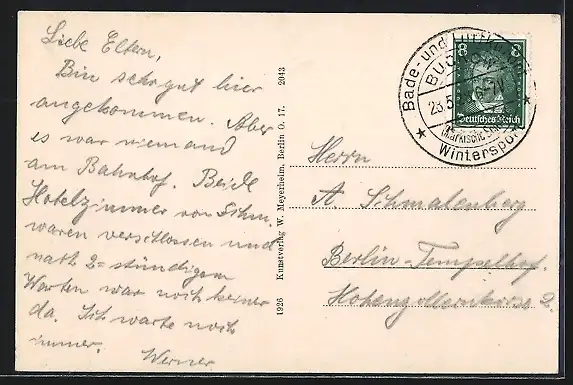 Liebe Eltern,
Bin sehr gut hier
angekommen. Aber
es war niemand
am Bahnhof. Beide
Hotelzimmer von
waren verschlossen und
nach 2=stündigem
Warten war noch keiner
da. Ich warte noch
immer.
Werner
1926 Kunstverlag W. Meyerheim, Berlin O. 17. 2043
Bade- und
Buckow
(Märkische
Wintersport
8 8
Deutsches Reich
Herrn
A. Schmalenberg
Berlin-Tempelhof.
Hohenzollernkorso 2.